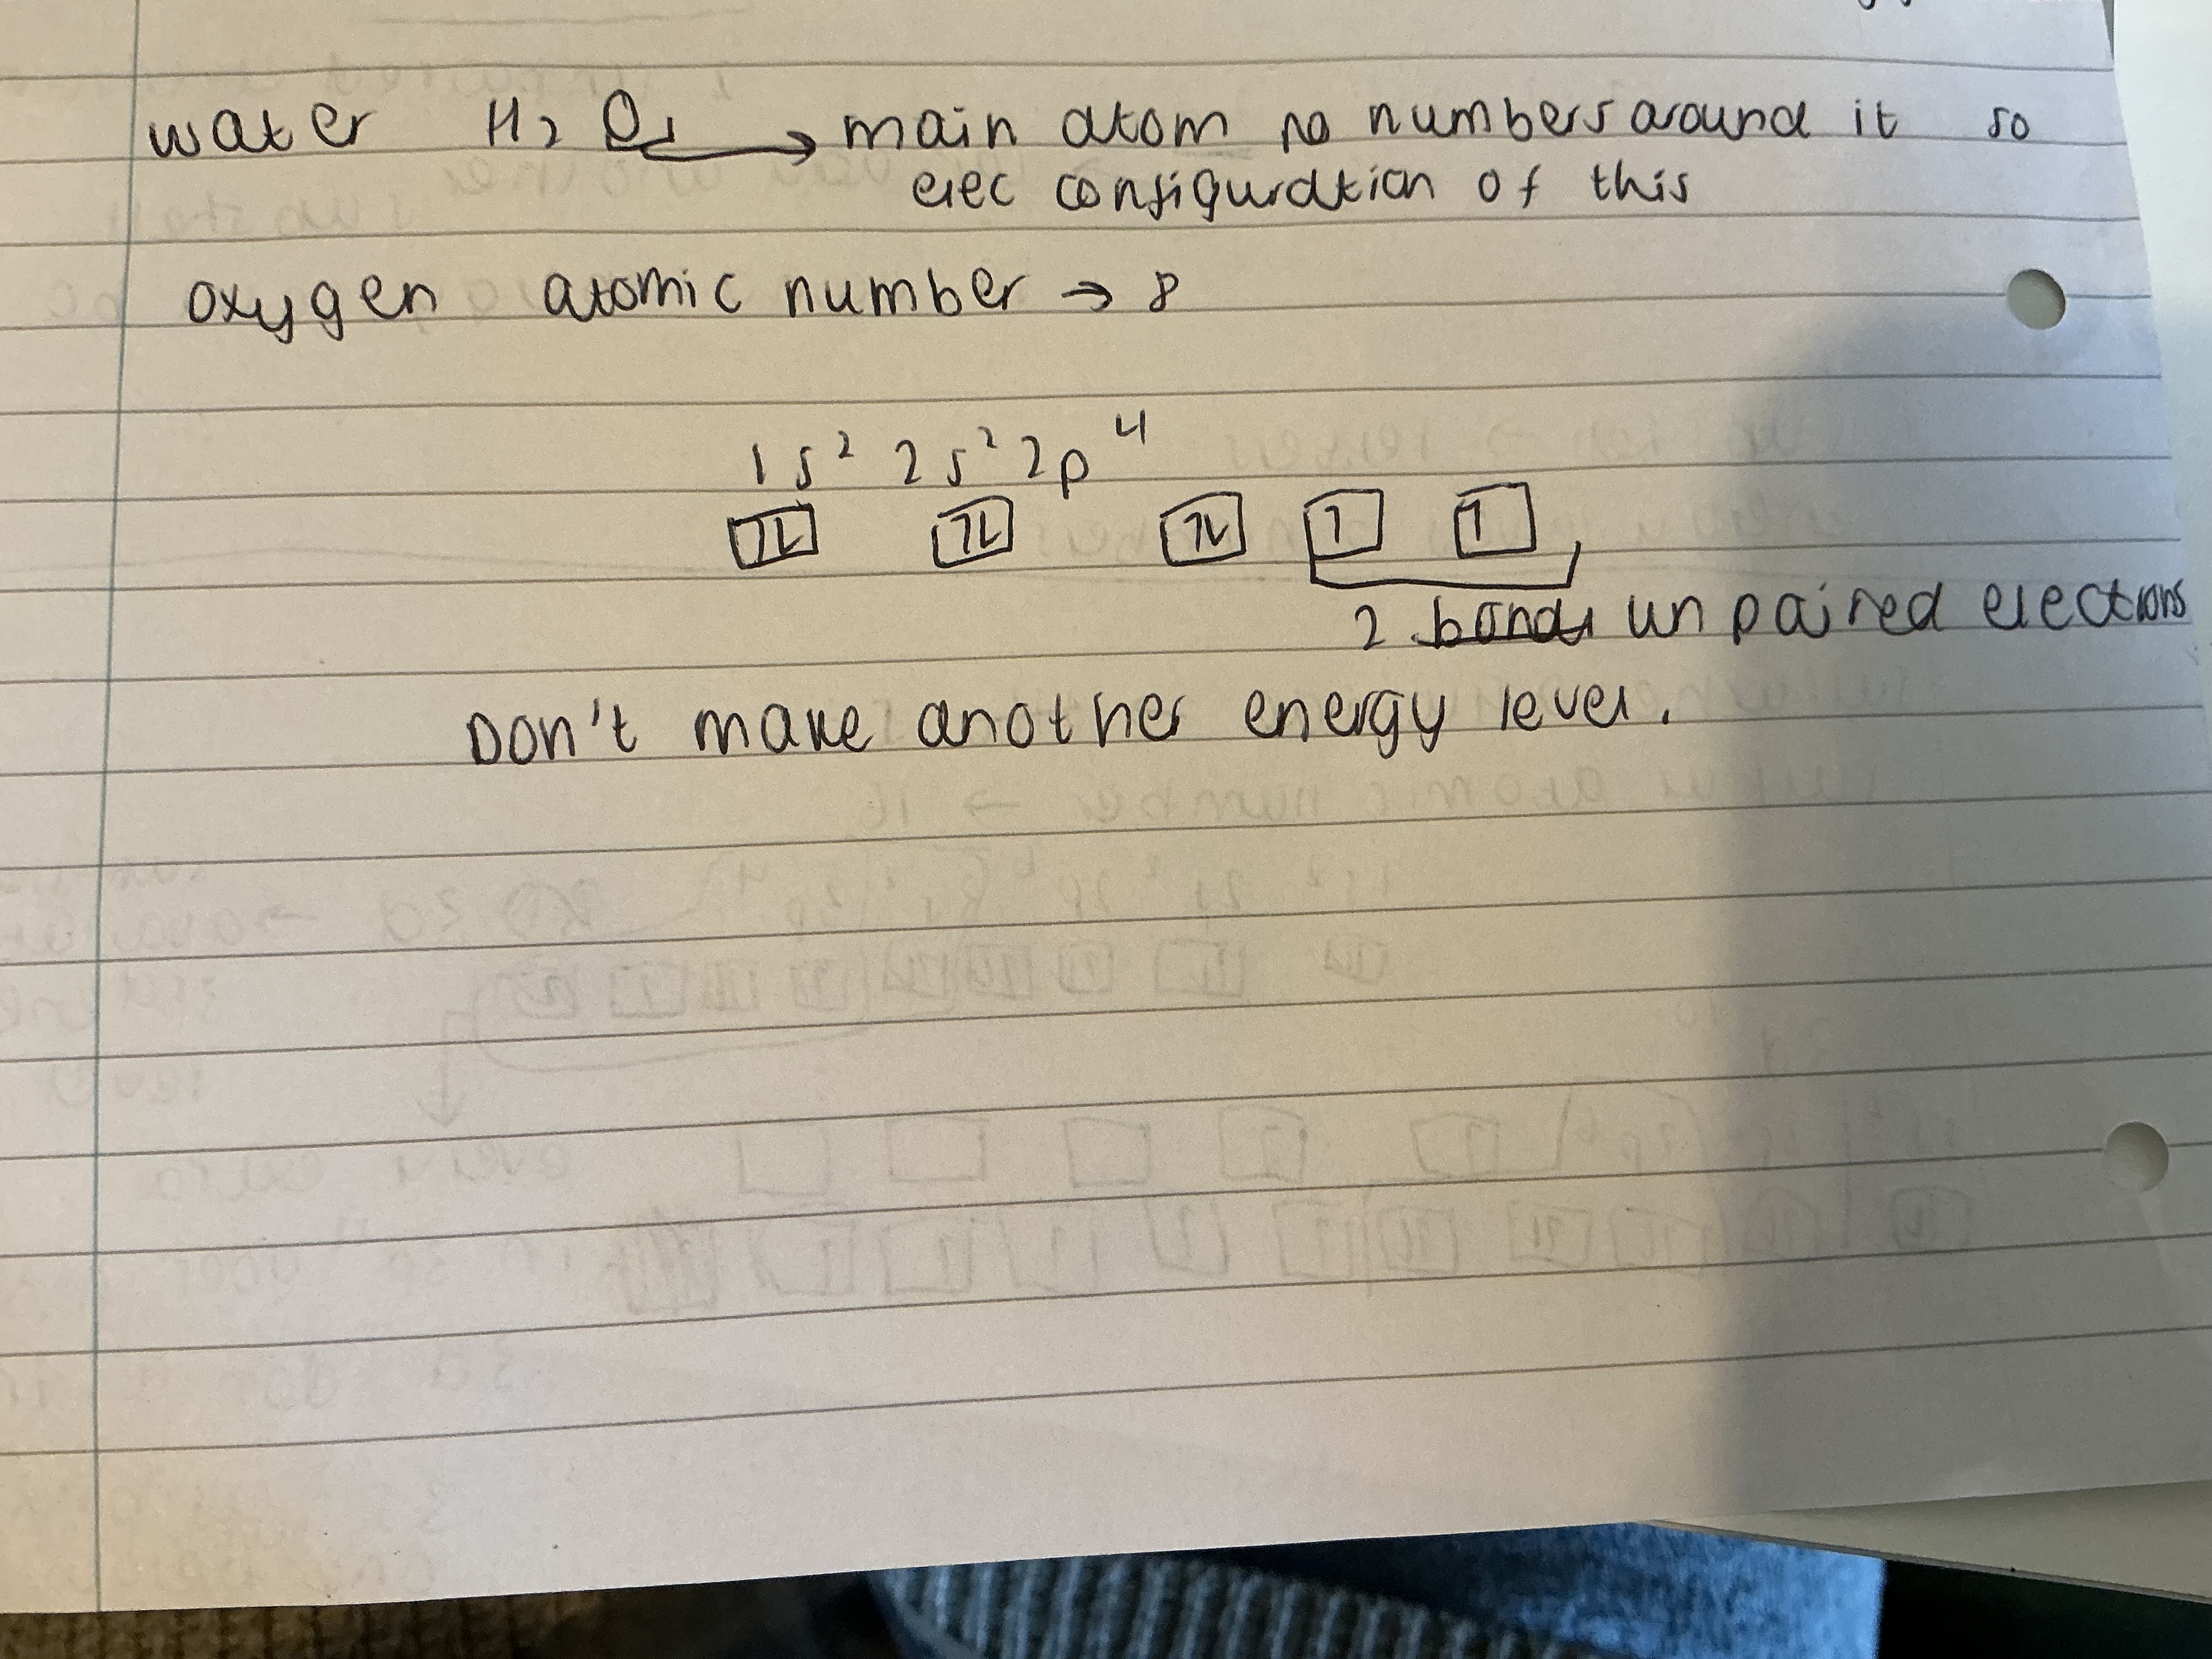 water H2 O → main atom no numbers around it so
elec configuration of this
oxygen atomic number → 8
1s² 2s² 2p⁴
↿⇂ ↿⇂ ↿⇂ 1 1
2 bonds unpaired electrons
Don't make another energy level.